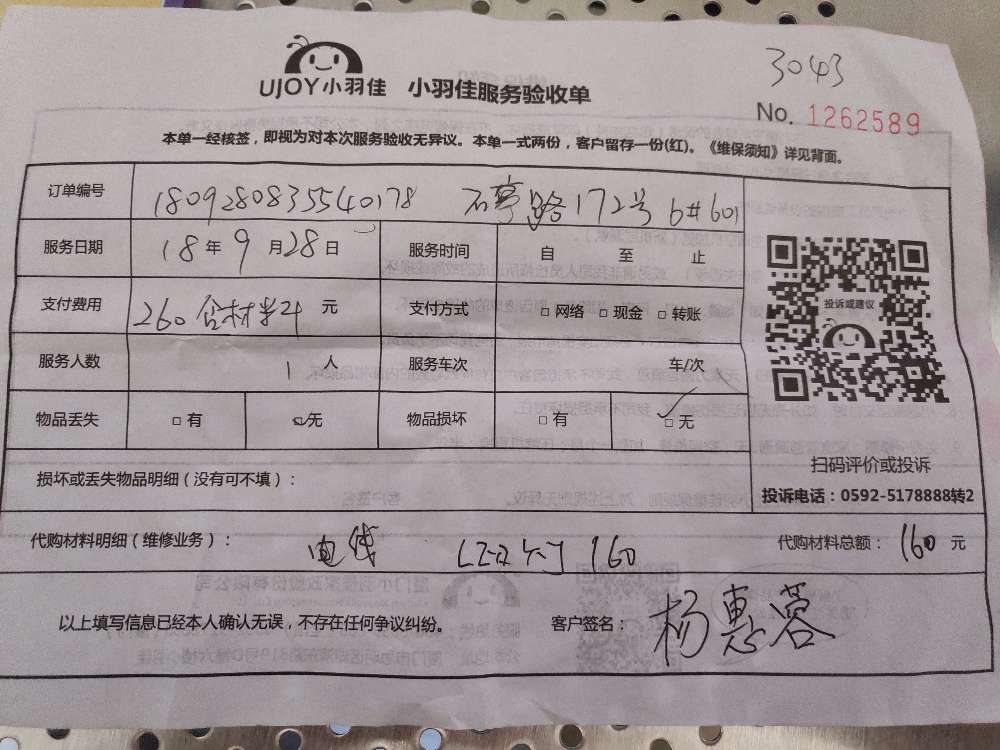 3043
UJOY小羽佳 小羽佳服务验收单
No. 1262589
本单一经核签，即视为对本次服务验收无异议。本单一式两份，客户留存一份(红)。《维保须知》详见背面。
订单编号 1809280835540178 石亭路172号 6#601
服务日期 18年9月28日 服务时间 自 至 止
支付费用 260含材料 元 支付方式 □网络 □现金 □转账
投诉或建议
服务人数 1人 服务车次 车/次
物品丢失 □有 □无 物品损坏 □有 □无
扫码评价或投诉
损坏或丢失物品明细（没有可不填）：
投诉电话：0592-5178888转2
代购材料明细（维修业务）： 电线 160 代购材料总额： 160 元
以上填写信息已经本人确认无误，不存在任何争议纠纷。 客户签名： 杨惠蓉